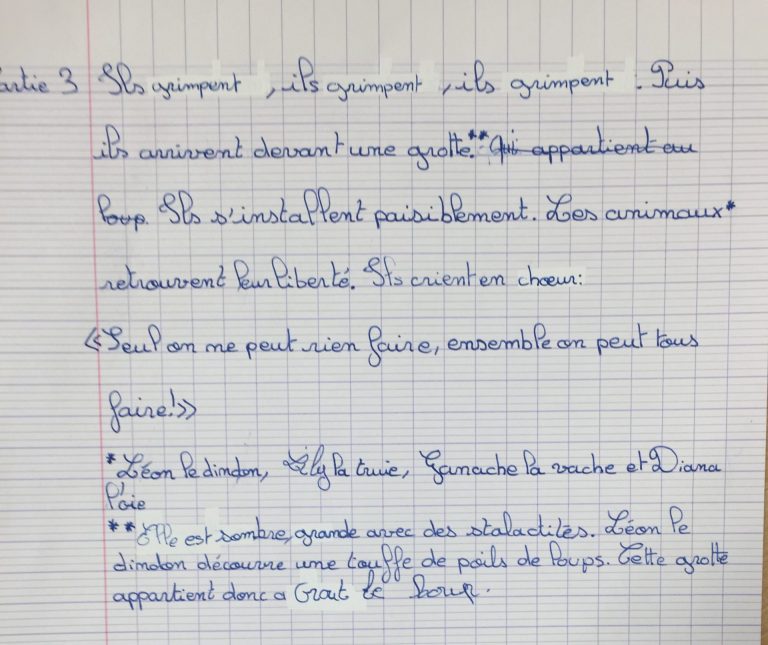 artie 3 Ils grimpent, ils grimpent, ils grimpent. Puis
ils arrivent devant une grotte.** qui appartient au
loup. Ils s'installent paisiblement. Les animaux*
retrouvent leur liberté. Ils crient en chœur:
«Seul on ne peut rien faire, ensemble on peut tous
faire!»
*Léon le dindon, Lily la truie, Ganache la vache et Diana
l'oie
**Elle est sombre, grande avec des stalactites. Léon le
dindon découvre une touffe de poils de loups. Cette grotte
appartient donc a Grout le loup.